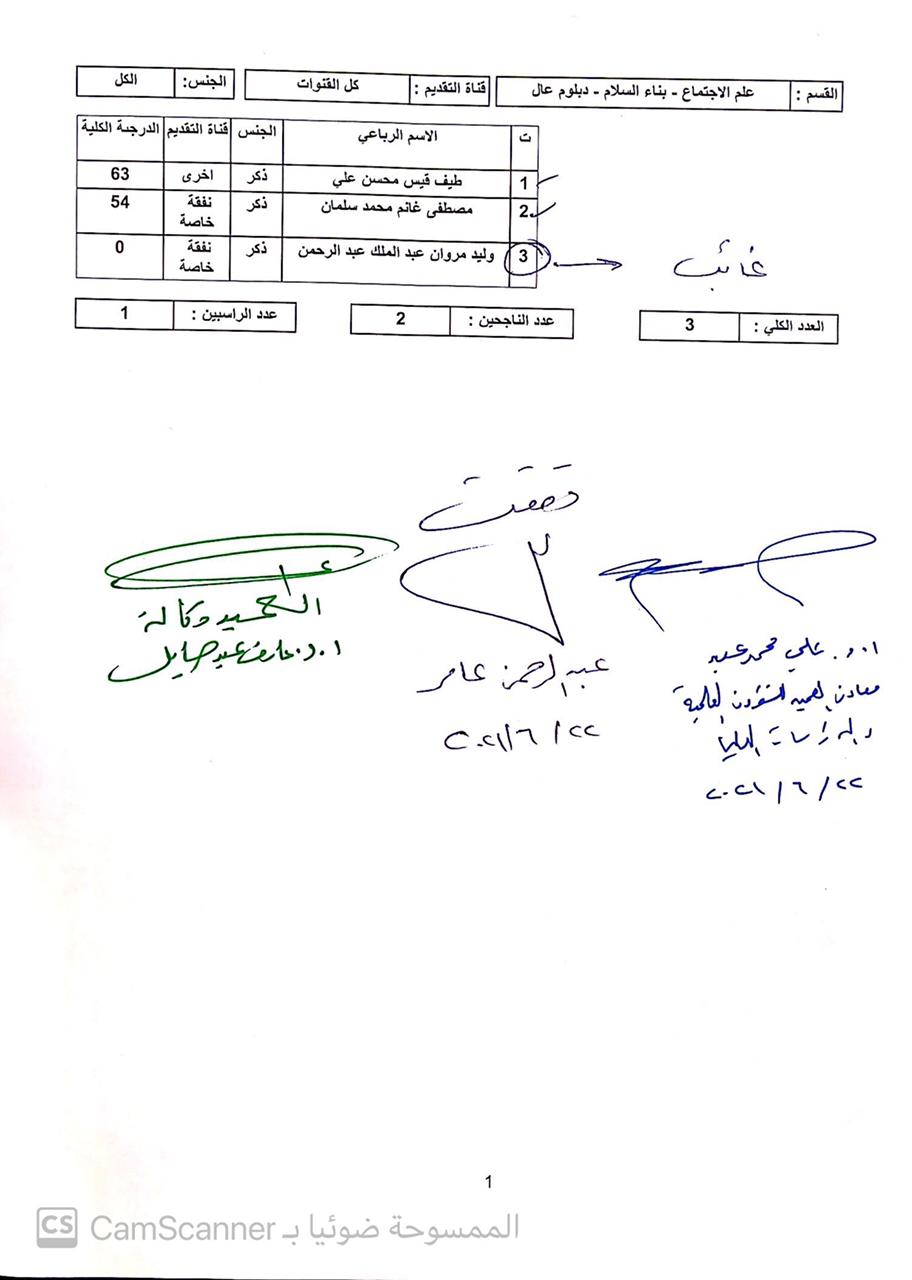 القسم : علم الاجتماع - بناء السلام - دبلوم عال قناة التقديم : كل القنوات الجنس: الكل
ت الاسم الرباعي الجنس قناة التقديم الدرجة الكلية
1 طيف قيس محسن علي ذكر اخرى 63
2 مصطفى غانم محمد سلمان ذكر نفقة خاصة 54
3 وليد مروان عبد الملك عبد الرحمن ذكر نفقة خاصة 0
غائب
العدد الكلي : 3 عدد الناجحين : 2 عدد الراسبين : 1
دققت
أ.د. علي محمد عبد
معاون العميد للشؤون العلمية
والدراسات العليا
٢٠٢١/٦/٢٢
عبد الرحمن عامر
٢٠٢١/٦/٢٢
العميد وكالة
ا.د. عارف عبد صايل
1
CS CamScanner الممسوحة ضوئيا بـ